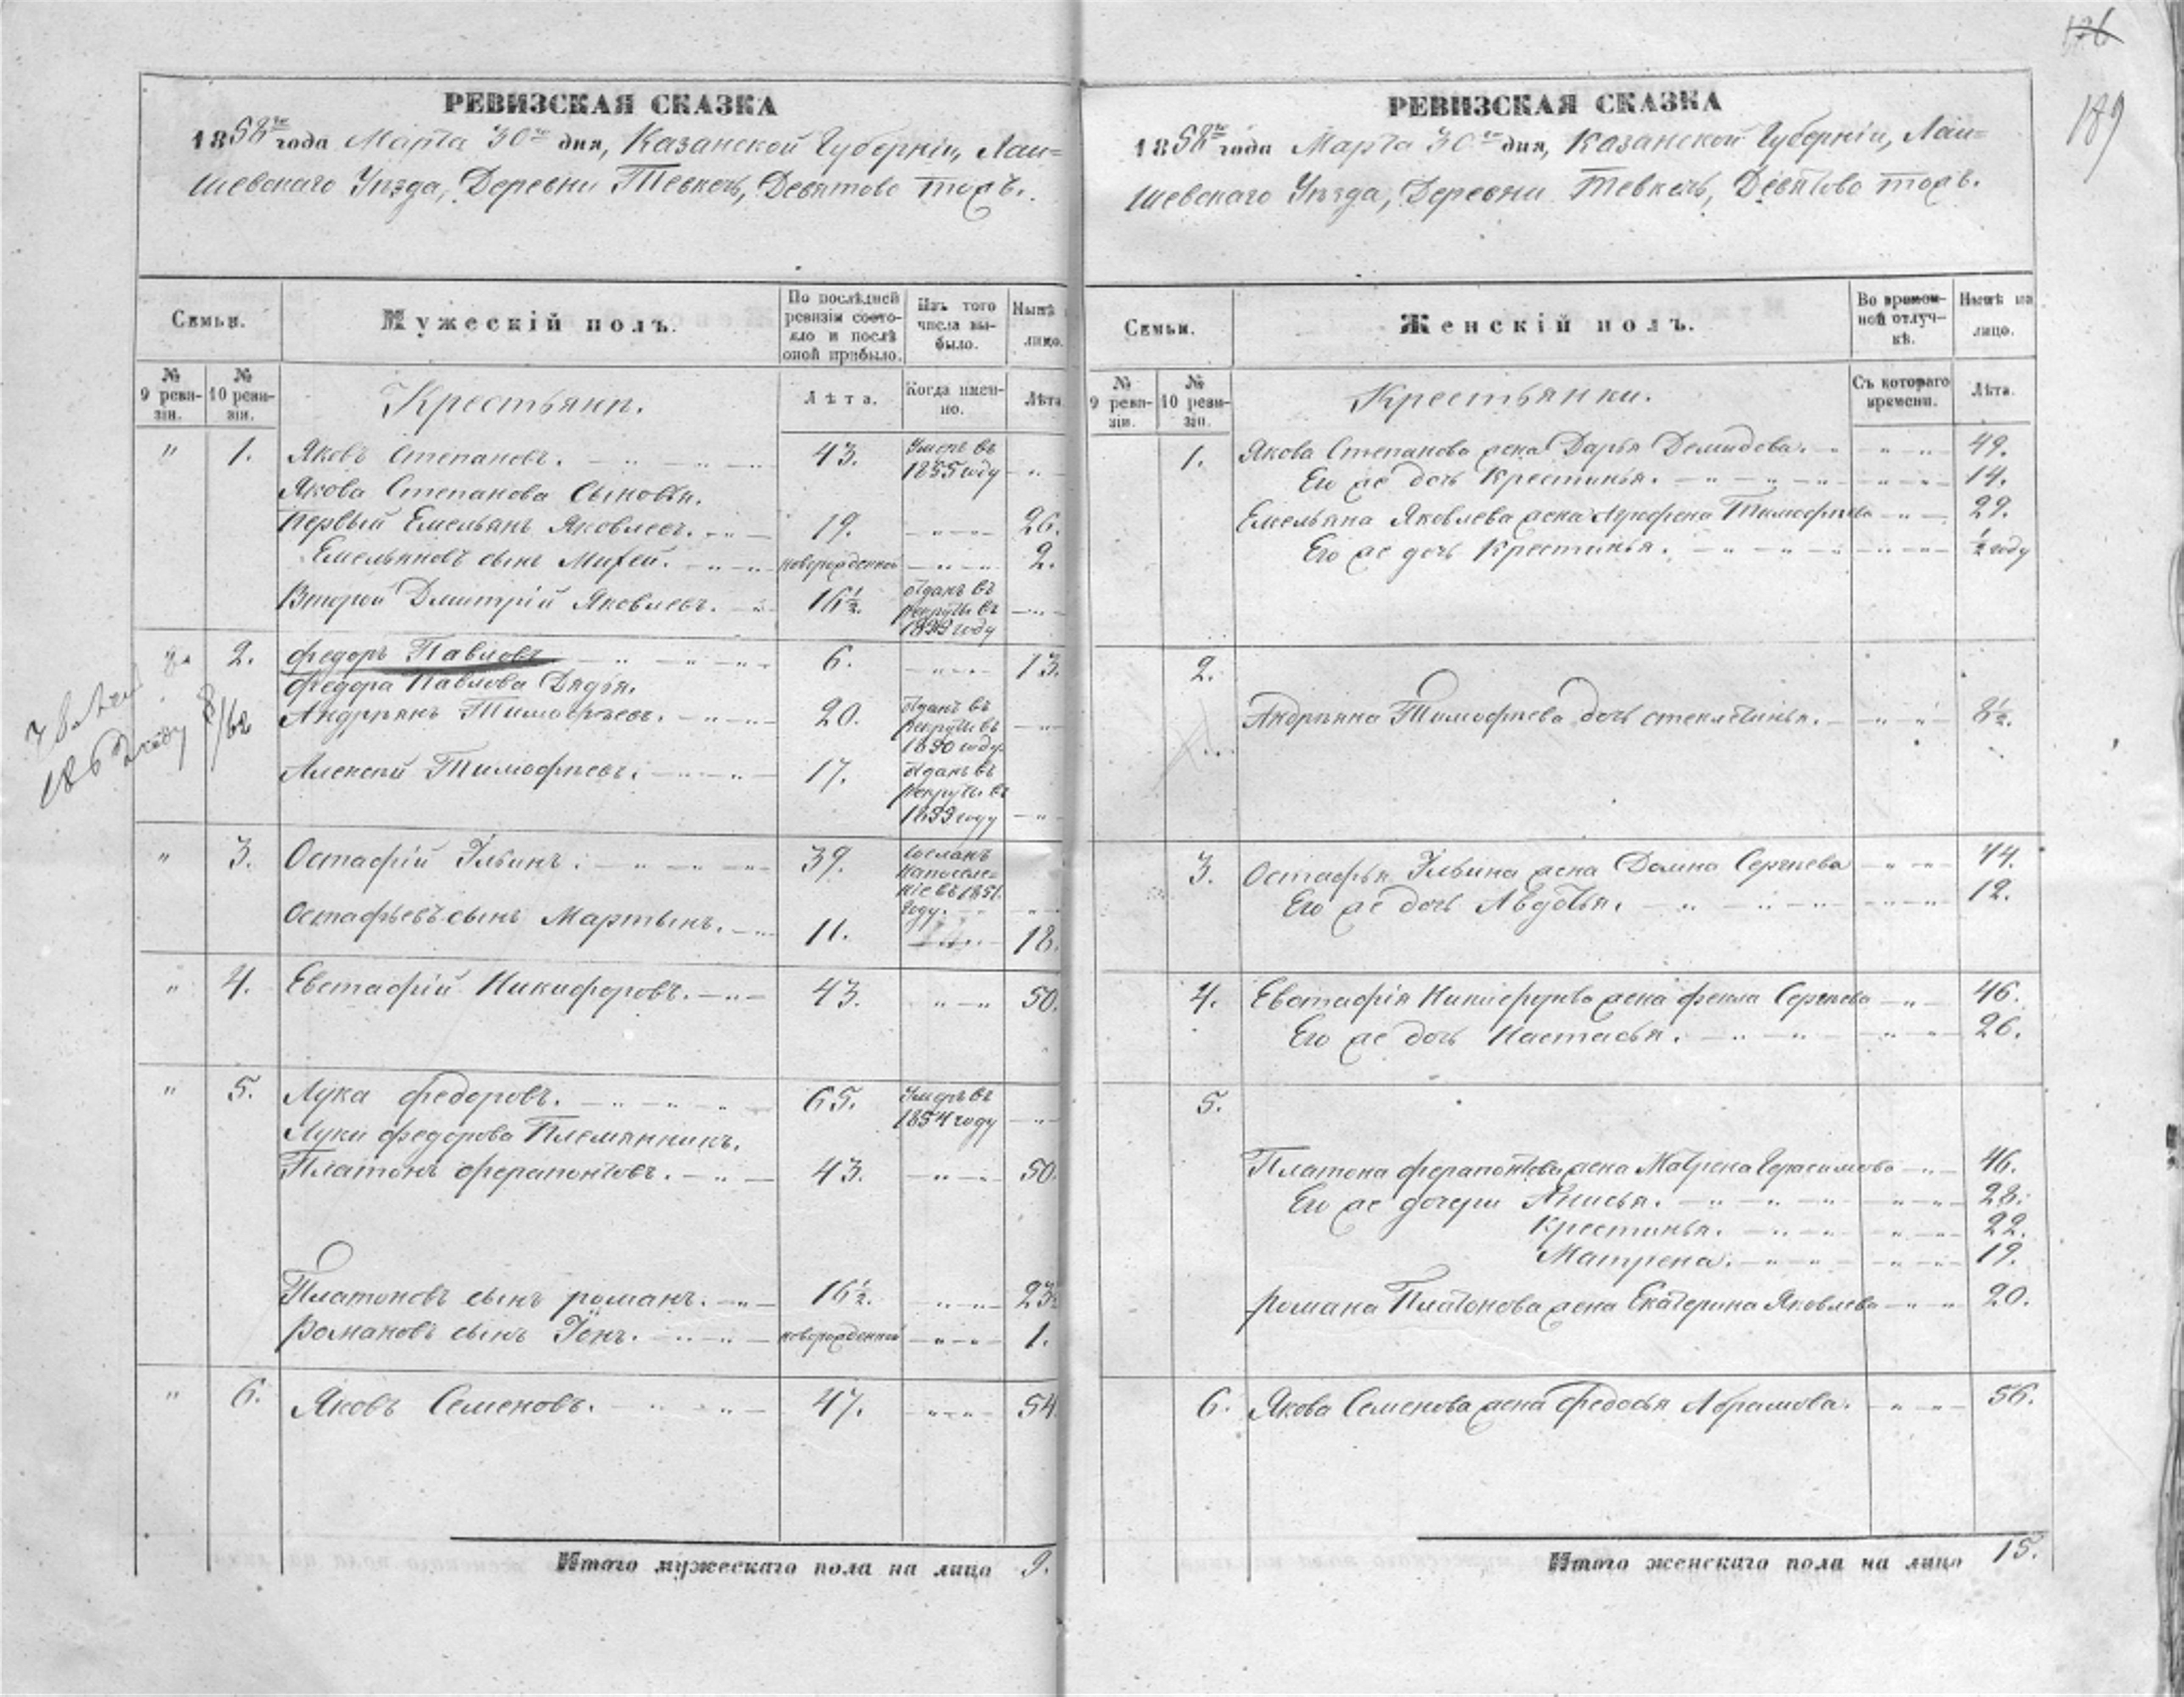 126
189
РЕВИЗСКАЯ СКАЗКА
1858го года Марта 30го дня, Казанской Губернiи, Лаи=
шевскаго Уѣзда, Деревни Тевкечь, Девятово тожъ.
Семьи.
Мужескiй полъ.
По послѣдней ревизiи состояло и послѣ оной прибыло.
Изъ того числа выбыло.
Нынѣ лицо.
№ 9 ревизiи.
№ 10 ревизiи.
Крестьяни.
Лѣта.
Когда именно.
Лѣта
" 1. Яковъ Степановъ. 43. Умеръ въ 1855 году
Якова Степанова Сыновья.
Первый Емельянъ Яковлевъ. 19. 26.
Емельяновъ сынъ Михей. новорожденной 2.
Второй Дмитрiй Яковлевъ. 16½. отданъ въ рекруты въ году
2. Федоръ Павловъ 6. 13.
Федора Павлова Дядья.
Андреянъ Тимофѣевъ. 20. отданъ въ рекруты въ году
Алексѣй Тимофѣевъ. 17. отданъ въ рекруты въ году
186 году
" 3. Остафiй Ильинъ. 39. Сосланъ на поселенiе въ 1851. году.
Остафьевъ сынъ Мартынъ. 11. 18.
" 4. Евстафiй Никифоровъ. 43. 50.
" 5. Лука Федоровъ. 65. Умеръ въ 1854 году
Луки Федорова Племянникъ.
Платонъ Ферапонтовъ. 43. 50.
Платоновъ сынъ Романъ. 16½. 23½
Романовъ сынъ Iонъ. новорожденной 1.
" 6. Яковъ Семеновъ. 47. 54
Итого мужескаго пола на лицо 9.
РЕВИЗСКАЯ СКАЗКА
1858го года Марта 30го дня, Казанской Губернiи, Лаи=
шевскаго Уѣзда, Деревни Тевкечь, Девятово тожъ.
Семьи.
Женскiй полъ.
Во временной отлучкѣ.
Нынѣ на лицо.
№ 9 ревизiи.
№ 10 ревизiи.
Крестьянки.
Съ котораго времени.
Лѣта.
1. Якова Степанова жена Дарья Демидова. 49.
Его же дочь Крестинья. 14.
Емельяна Яковлева жена Лукерья Тимофѣева 29.
Его же дочь Крестинья. ½ году
2.
Андреяна Тимофѣева дочь Стеклетинья. 8½.
3. Остафья Ильина жена Домна Сергѣева 44.
Его же дочь Авдотья. 12.
4. Евстафiя Никифорова жена Фекла Сергѣева 46.
Его же дочь Настасья. 26.
5.
Платона Ферапонтова жена Матрена Герасимова 46.
Его же дочери Анисья. 28.
Крестинья. 22.
Матрена. 19.
Романа Платонова жена Екатерина Яковлева 20.
6. Якова Семенова жена Федосья Абрамова. 56.
Итого женскаго пола на лицо 15.